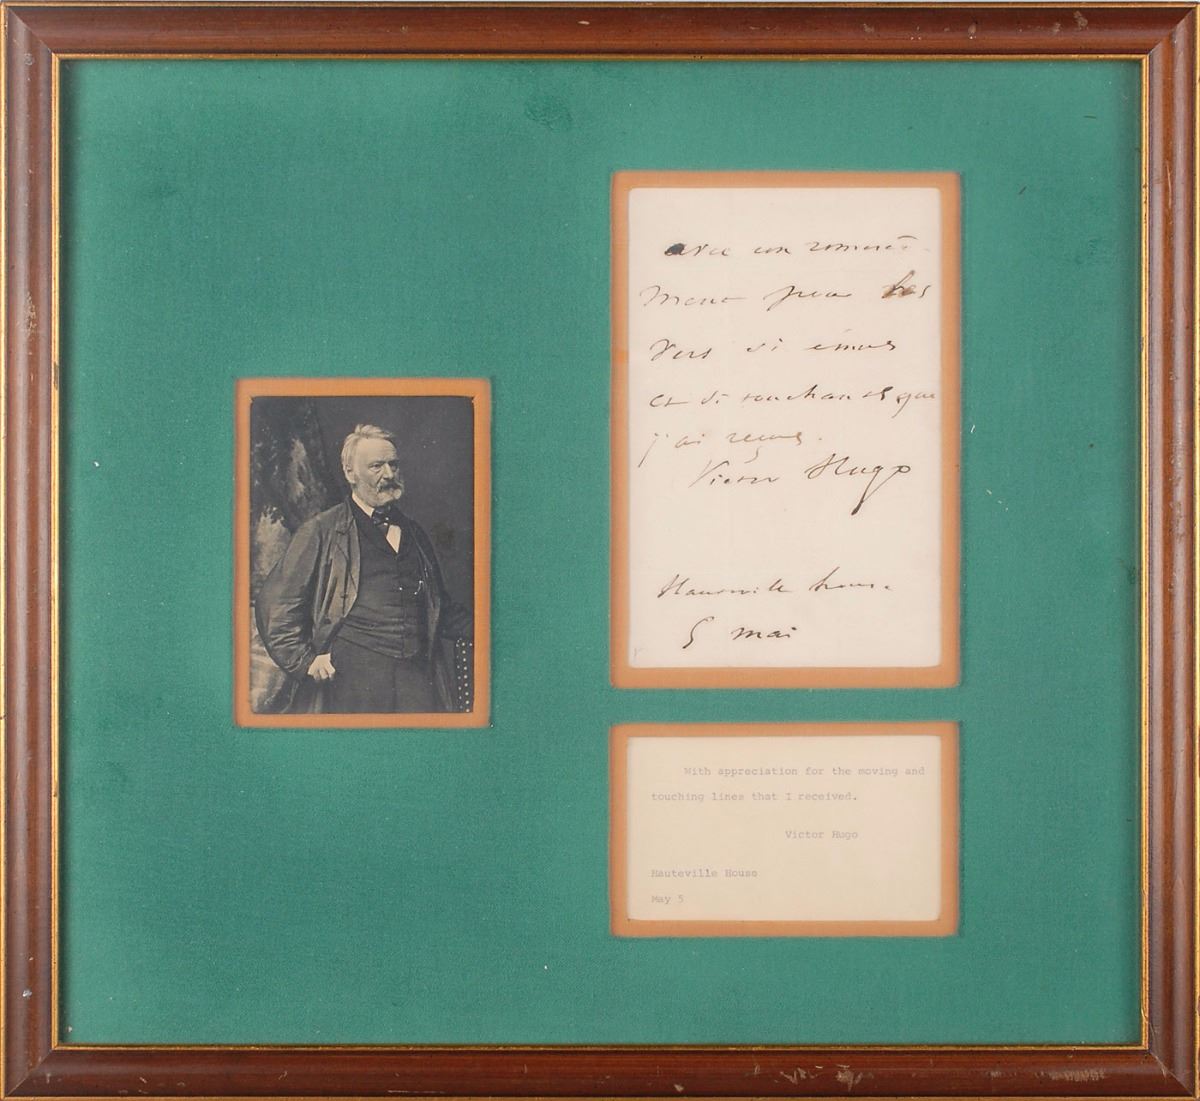 avec un remercî-
ment pour les
vers si émus
et si touchants que
j'ai reçus.
Victor Hugo
Hauteville house
5 mai
With appreciation for the moving and
touching lines that I received.
Victor Hugo
Hauteville House
May 5